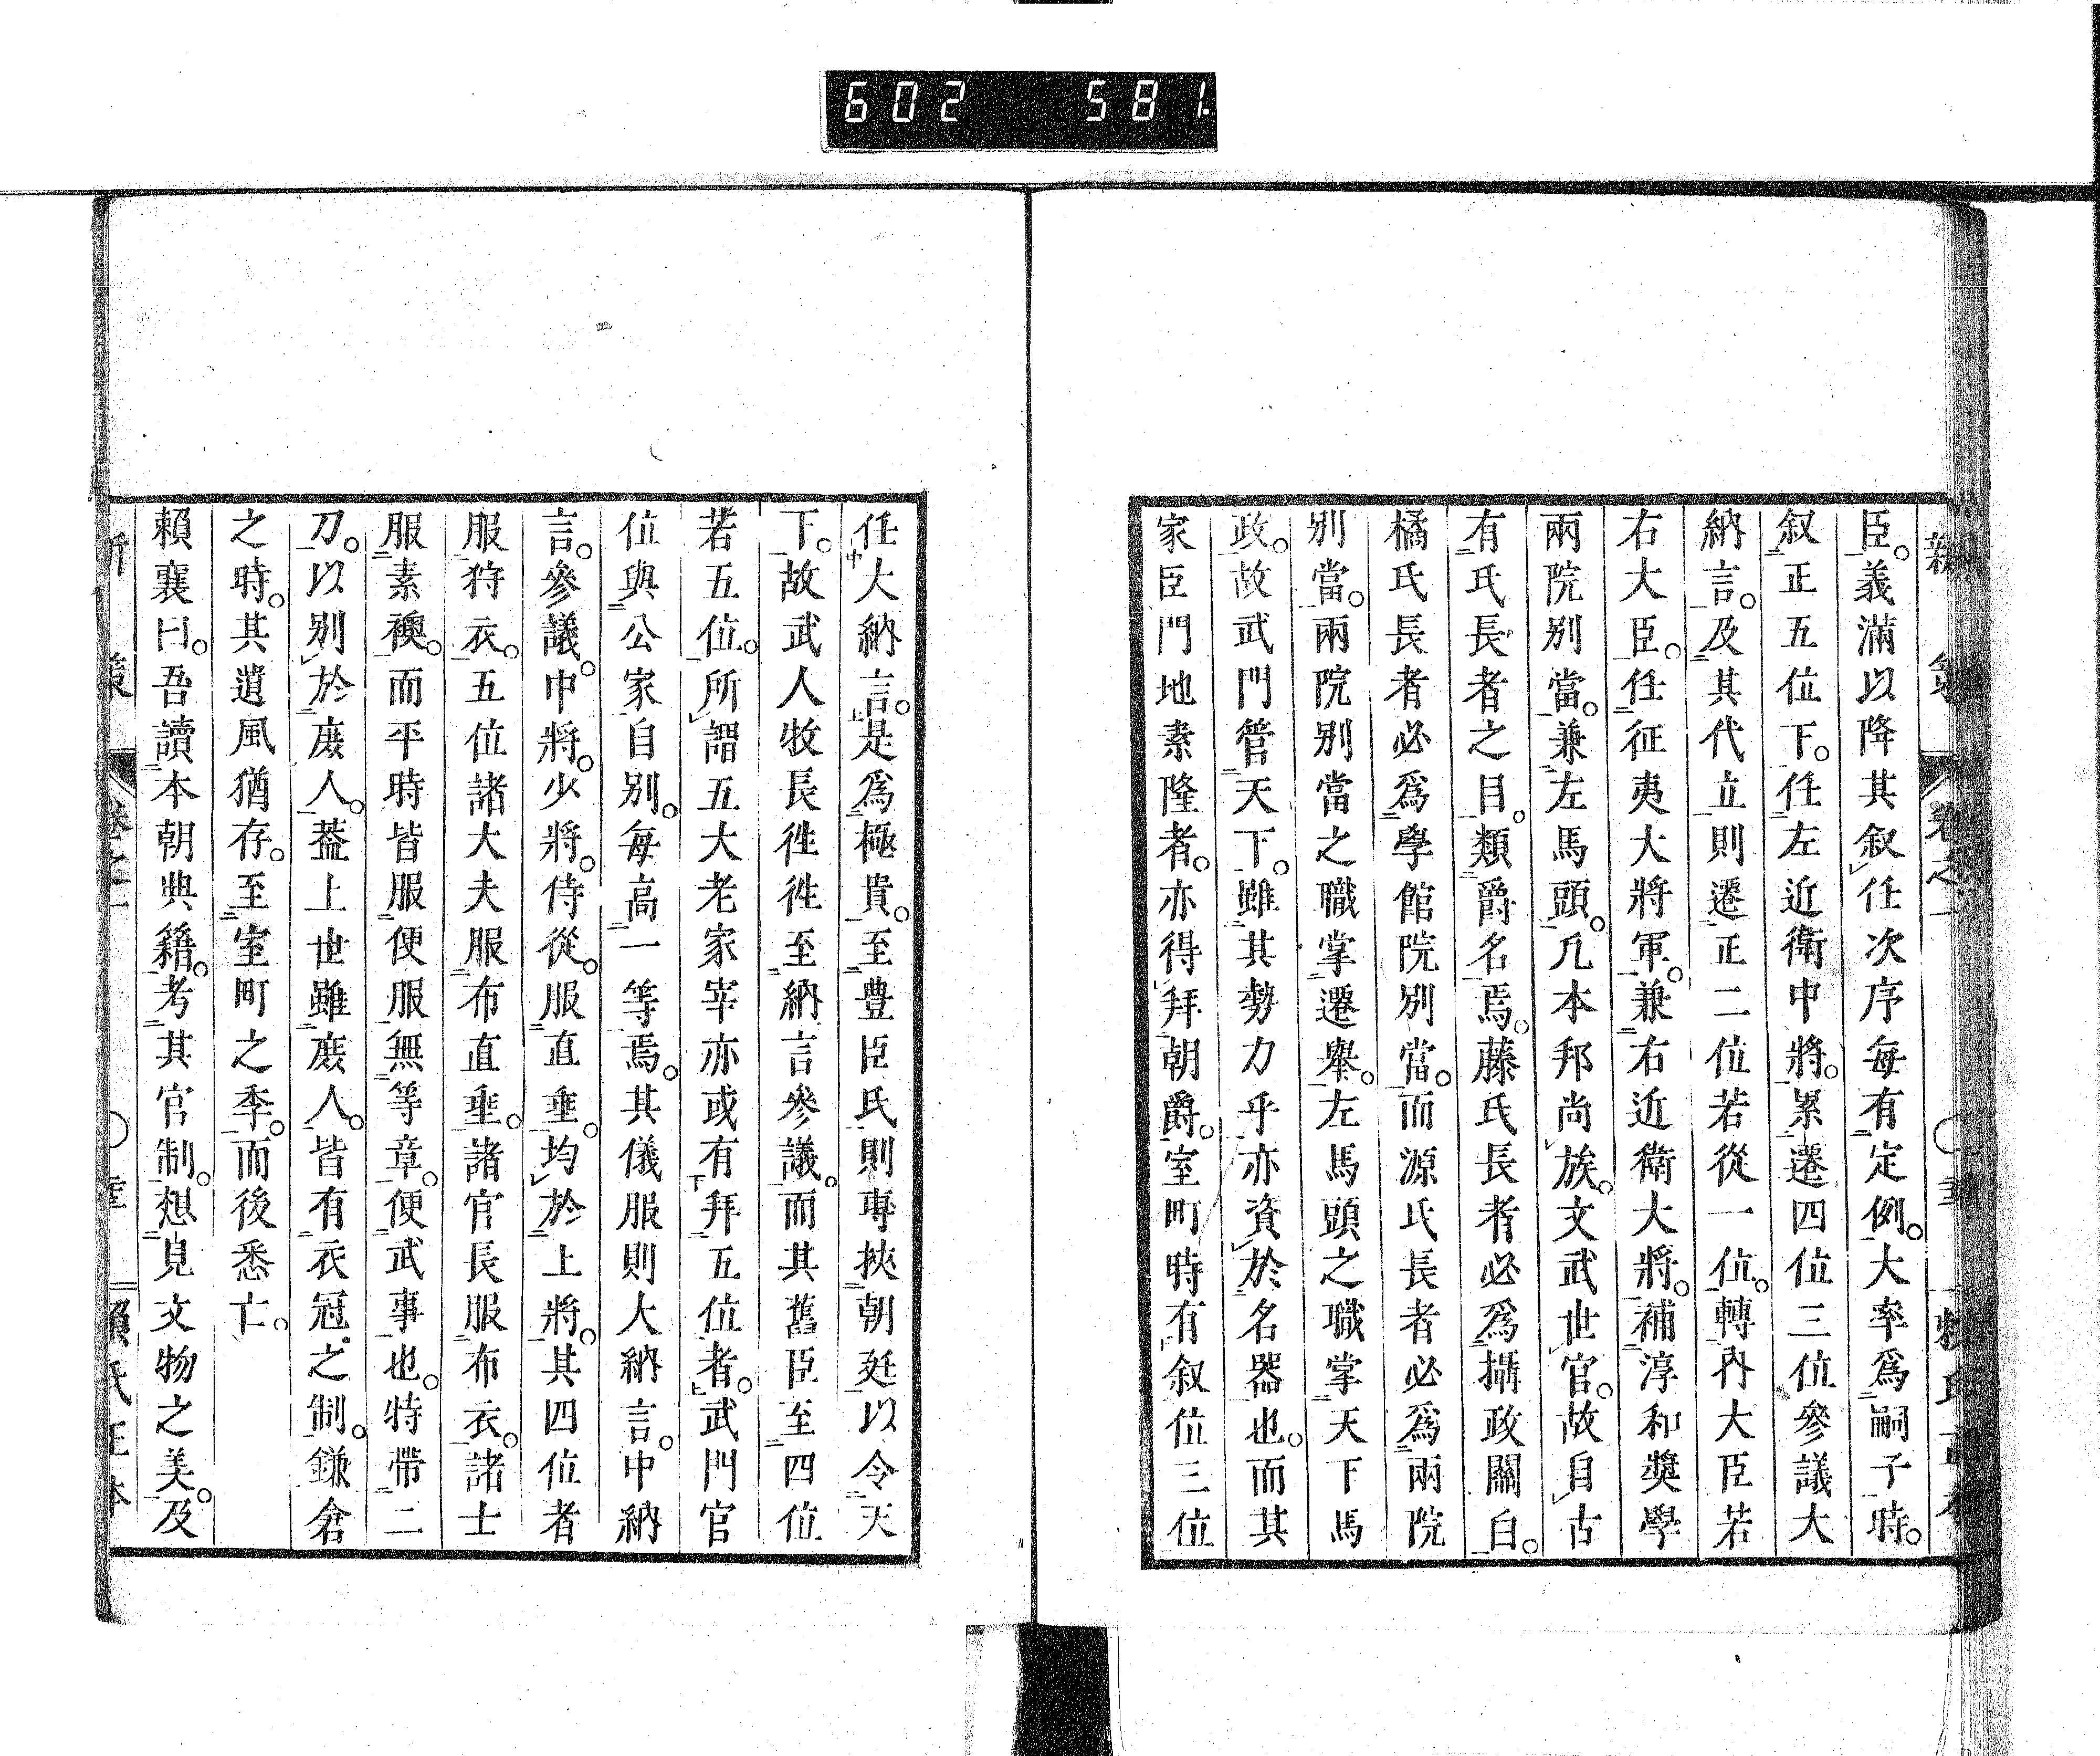 602 581.
臣。義滿以降其叙任次序每有定例。大率爲嗣子時。
叙正五位下。任左近衛中將。累遷四位三位參議大
納言。及其代立則遷正二位若從一位。轉内大臣若
右大臣。任征夷大將軍。兼右近衛大將。補淳和奬學
兩院別當。兼左馬頭。凡本邦尚族。文武世官。故自古
有氏長者之目。類爵名焉。藤氏長者必爲攝政關白。
橘氏長者必爲學館院別當。而源氏長者必爲兩院
別當。兩院別當之職掌遷擧。左馬頭之職掌天下馬
政。故武門管天下。雖其勢力乎亦資於名器也。而其
家臣門地素隆者。亦得拜朝爵。室町時有叙位三位
任大納言。是爲極貴。至豊臣氏則專挾朝廷以令天
下。故武人牧長徃徃至納言參議。而其舊臣至四位
若五位。所謂五大老家宰亦或有拜五位者。武門官
位與公家自別。每高一等焉。其儀服則大納言。中納
言。參議。中將。少將。侍從。服直垂。均於上將。其四位者
服狩衣。五位諸大夫服布直垂。諸官長服布衣。諸士
服素襖。而平時皆服便服無等章。便武事也。特帶二
刀。以別於庻人。葢上世雖庻人。皆有衣冠之制。鎌倉
之時。其遺風猶存。至室町之季。而後悉亡。
賴襄曰。吾讀本朝典籍。考其官制。想見文物之美。及
新策 卷之一 賴氏正本